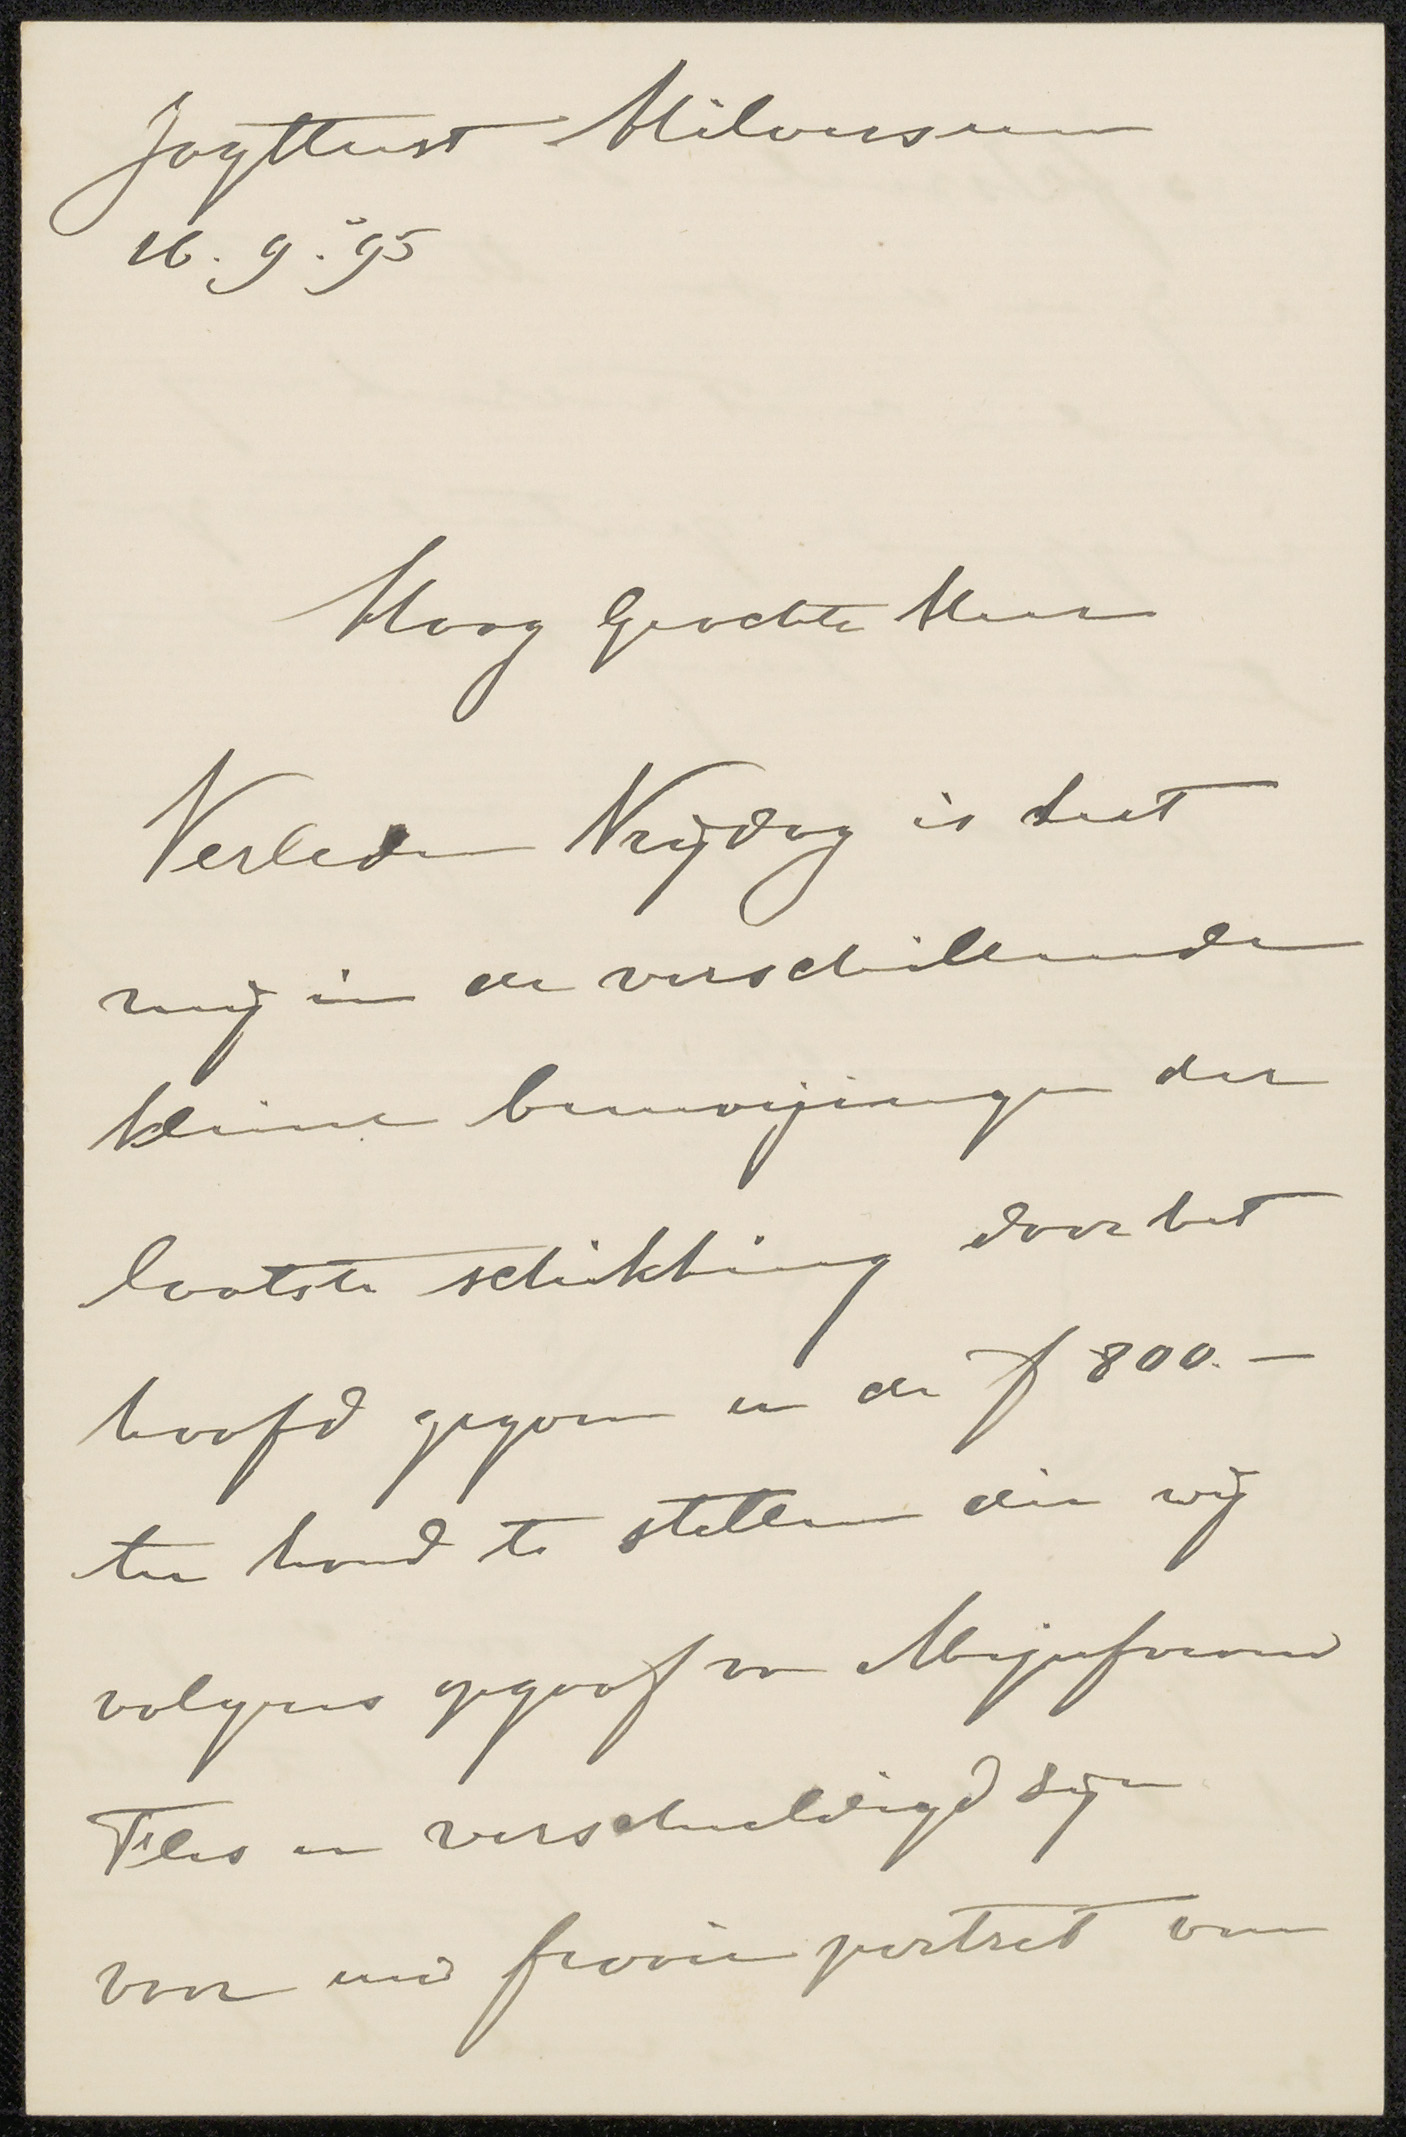 Jagtlust Hilversum
16.9.'95
Hoog Geachte Heer
Verleden Vrijdag is het
mij in de verschillende
kleine bemoeijingen der
laatste schikking door het
hoofd gegaan U de f 800.—
ter hand te stellen die wij
volgens opgaaf van Mejufvrouw
Fles U verschuldigd zijn
voor uw fraaie portret van